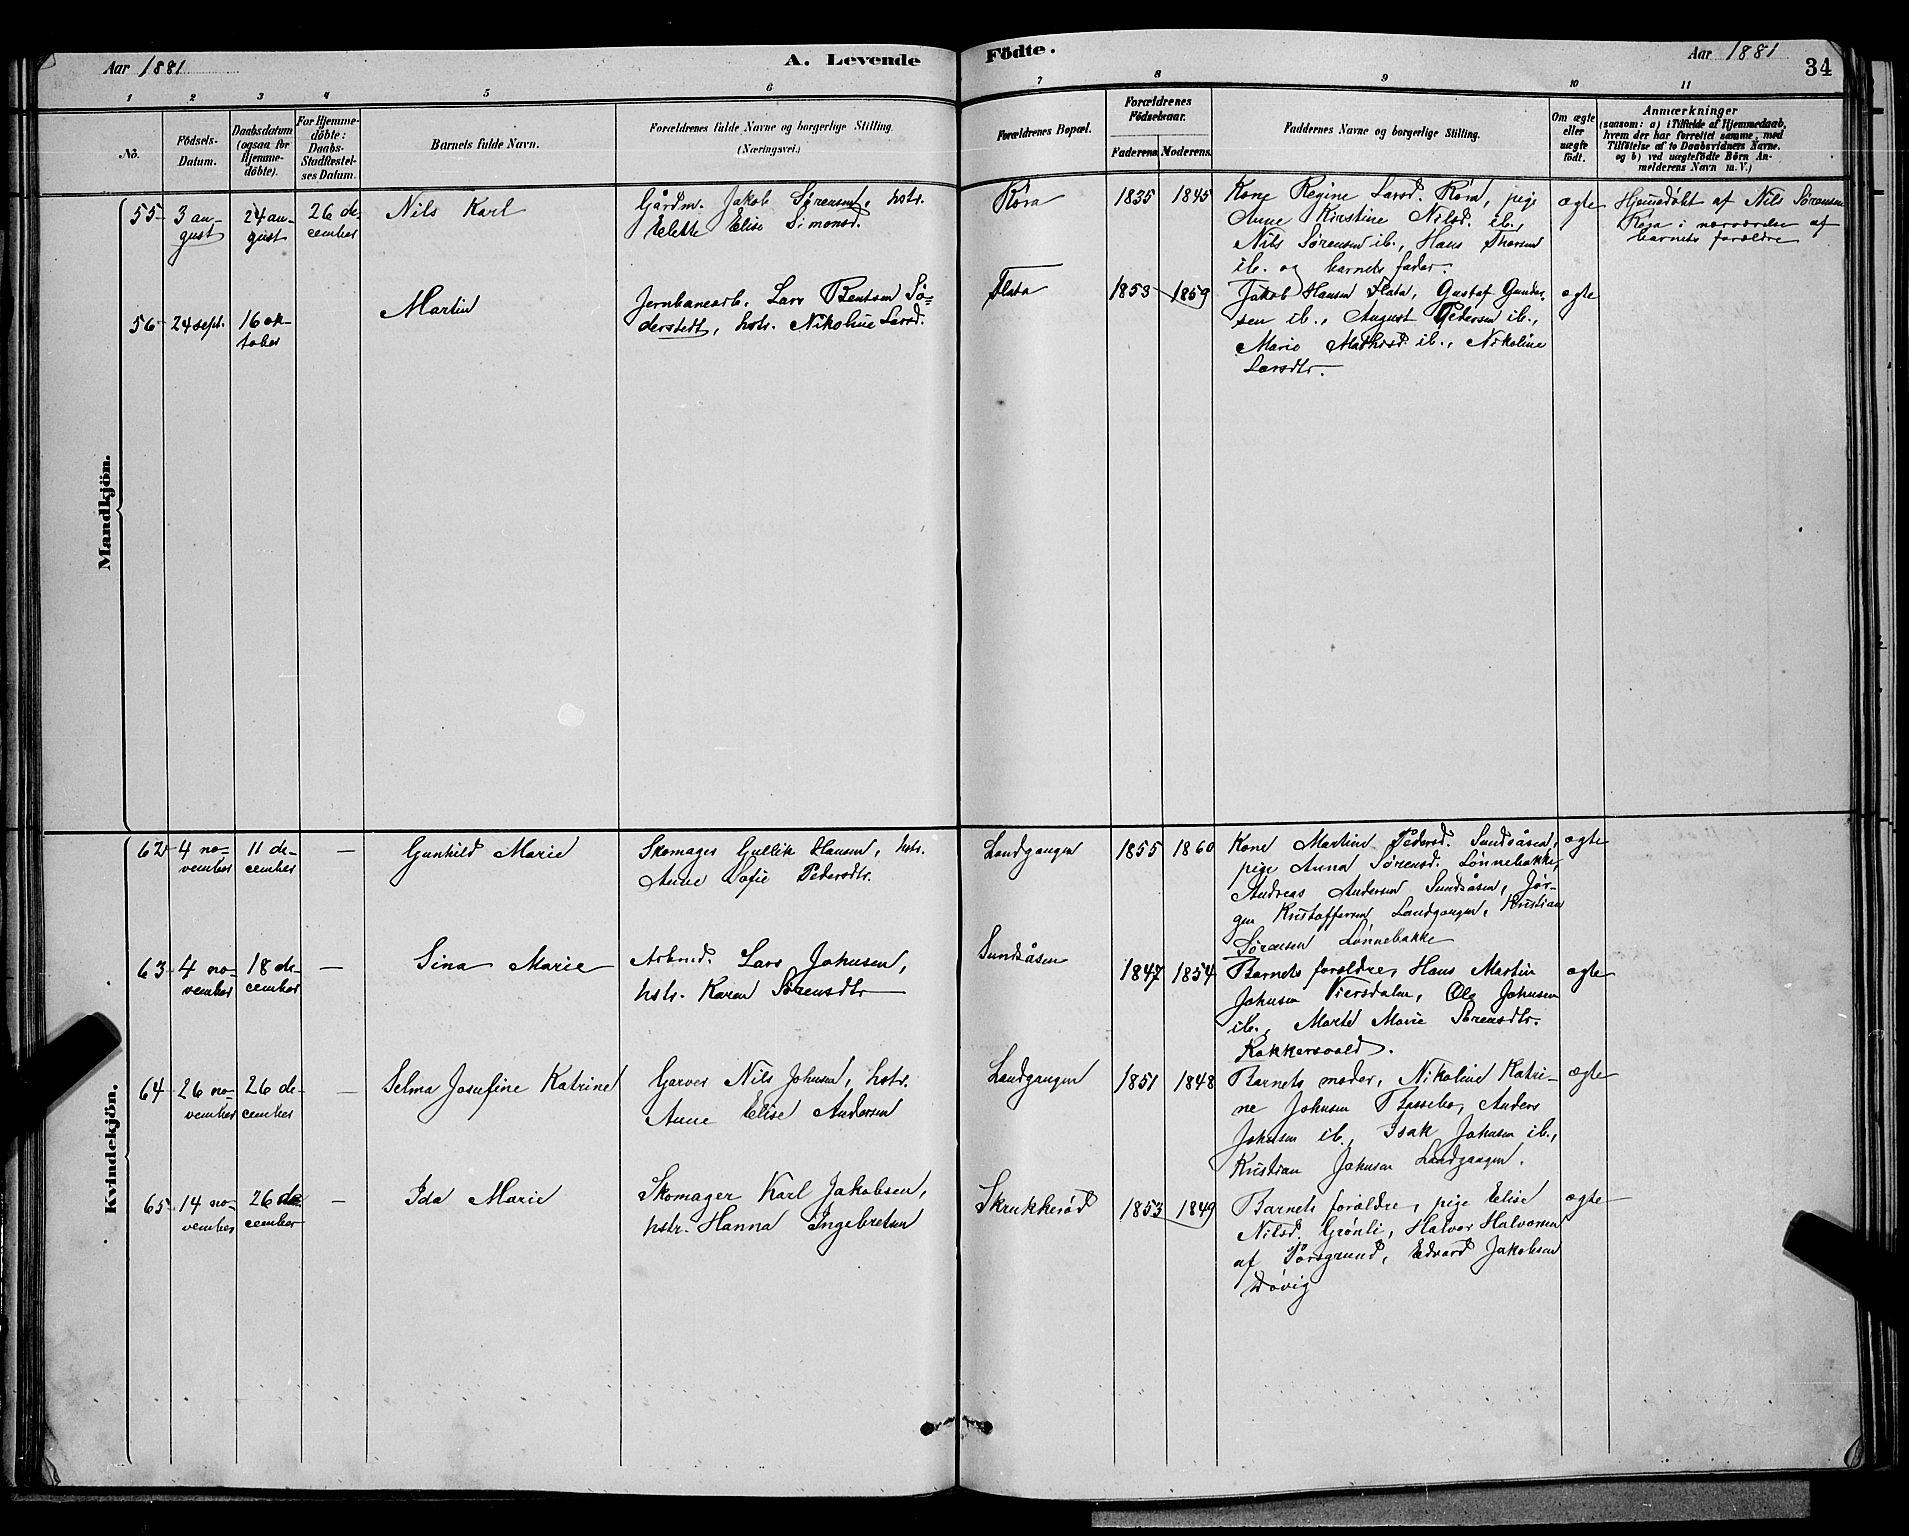 Aar 1881
A. Levende
Födte.
Aar 1881
34
1 2 3 4 5 6 7 8 9 10 11
No.
Födsels-
Datum.
Daabsdatum
(ogsaa for
Hjemme-
döbte).
For Hjemme-
döbte:
Daabs-
Stadfæstel-
ses Datum.
Barnets fulde Navn.
Forældrenes fulde Navne og borgerlige Stilling.
(Næringsvei.)
Forældrenes Bopæl.
Forældrenes
Födselsaar.
Faderens Moderens
Faddernes Navne og borgerlige Stilling.
Om ægte
eller
uægte
födt.
Anmærkninger
(saasom: a) i Tilfælde af Hjemmedaab,
hvem der har forrettet samme, med
Tilföielse af to Daabsvidners Navne.
og b) ved uægtefödte Börn An-
melderens Navn m. V.)
Mandkjön.
55
3 au-
gust
24 au-
gust
26 de-
cember
Nils Karl
Gårdm. Jakob Sørensen, hstr.
Elette Elise Simonsd.
Röra
1835 1845
Kone Regine Larsd. Röra, pige
Anne Kirstine Nilsd. ib.,
Nils Sørensen ib., Hans Thorsen
ib. og barnets fader.
ægte
Hjemmedöbt af Nils Sørensen
Röra i nærværelse af
barnets forældre
56
24 sept.
16 ok-
tober
Martin
Jernbanearb. Lars Bentsen Sö-
derstedt, hstr. Nikoline Larsd.
Flata
1853 1859
Jakob Hansen Flata, Gustaf Gunder-
sen ib., August Pedersen ib.,
Marie Mathisd. ib., Nikoline
Larsdtr.
ægte
Kvindekjön.
62
4 no-
vember
11 de-
cember
—
Gunhild Marie
Skomager Gullik Hansen, hstr.
Anne Sofie Pedersdtr.
Landgangen
1855 1860
Kone Martine Pedersd. Sundsåsen,
pige Anna Sørensd. Lønnebakke,
Andreas Andersen Sundsåsen, Jør-
gen Kristoffersen Landgangen, Kristian
Sørensen Lønnebakke
ægte
63
4 no-
vember
18 de-
cember
—
Sina Marie
Arbmd. Lars Johnsen,
hstr. Karen Sørensdtr
Sundsåsen
1847 1854
Barnets forældre, Hans Martin
Johnsen Viersdalen, Ole Johnsen
ib., Marte Marie Sørensdtr.
Kokkersvold.
ægte
64
26 no-
vember
26 de-
cember
—
Selma Josefine Katrine
Garver Nils Johnsen, hstr.
Anne Elise Andersen
Landgangen
1851 1848
Barnets moder, Nikoline Katri-
ne Johnsen Bassebo, Anders
Johnsen ib., Isak Johnsen ib.,
Kristian Johnsen Landgangen.
ægte
65
14 no-
vember
26 de-
cember
—
Ida Marie
Skomager Karl Jakobsen,
hstr. Hanna Ingebretsen
Skrukkerød
1853 1849
Barnets forældre, pige Elise
Nilsd. Grønli, Halvor Halvorsen
af Porsgrund, Edvard Jakobsen
Døvig
ægte